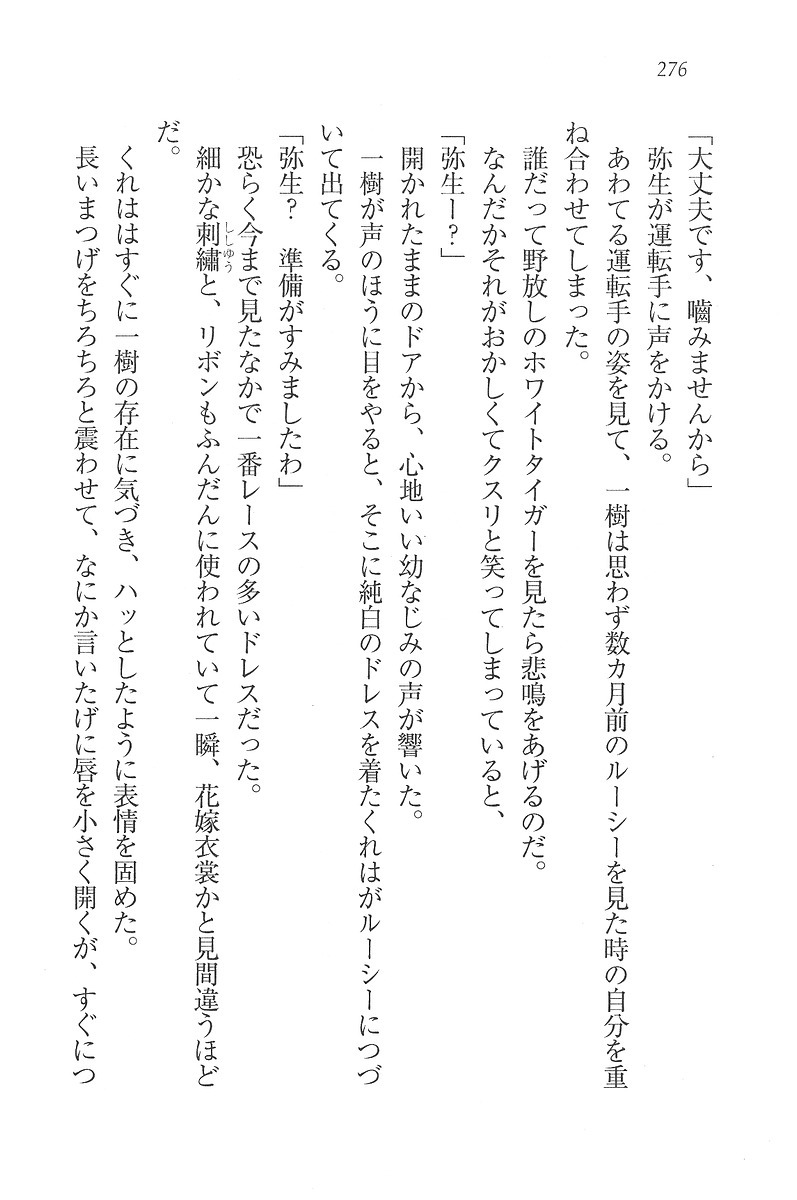 276
「大丈夫です、嚙みませんから」
弥生が運転手に声をかける。
あわてる運転手の姿を見て、一樹は思わず数カ月前のルーシーを見た時の自分を重
ね合わせてしまった。
誰だって野放しのホワイトタイガーを見たら悲鳴をあげるのだ。
なんだかそれがおかしくてクスリと笑ってしまっていると、
「弥生ー？」
開かれたままのドアから、心地いい幼なじみの声が響いた。
一樹が声のほうに目をやると、そこに純白のドレスを着たくれはがルーシーにつづ
いて出てくる。
「弥生？　準備がすみましたわ」
恐らく今まで見たなかで一番レースの多いドレスだった。
細かな刺繡ししゆうと、リボンもふんだんに使われていて一瞬、花嫁衣裳かと見間違うほど
だ。
くれははすぐに一樹の存在に気づき、ハッとしたように表情を固めた。
長いまつげをちろちろと震わせて、なにか言いたげに唇を小さく開くが、すぐにつ